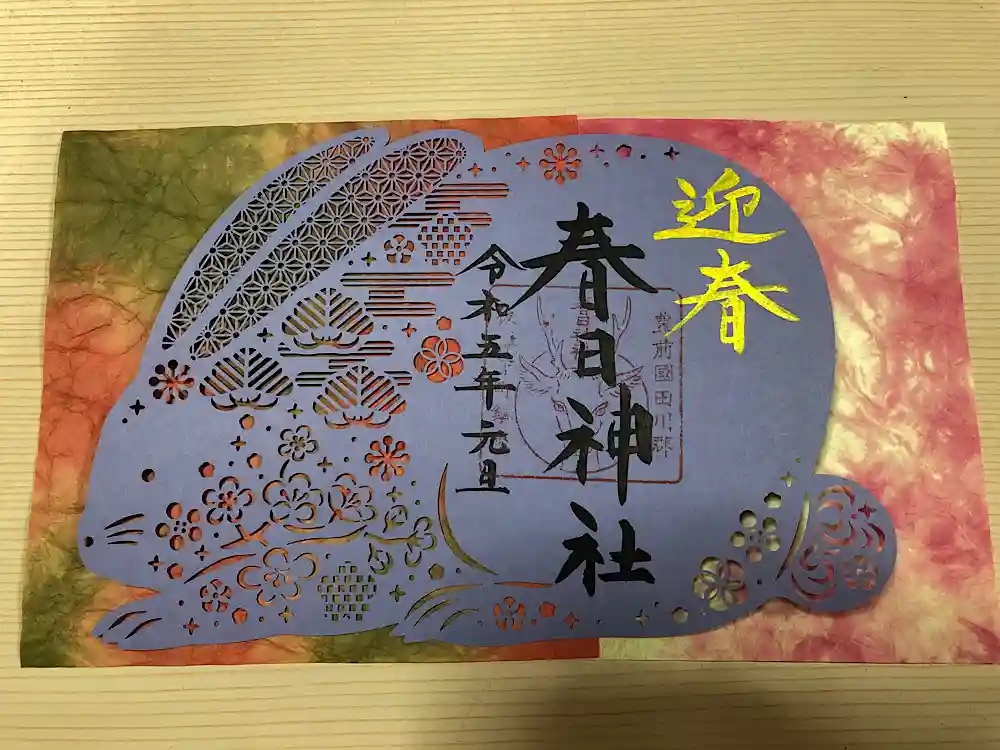 迎春
春日神社
豊前國田川郡
令和五年元旦